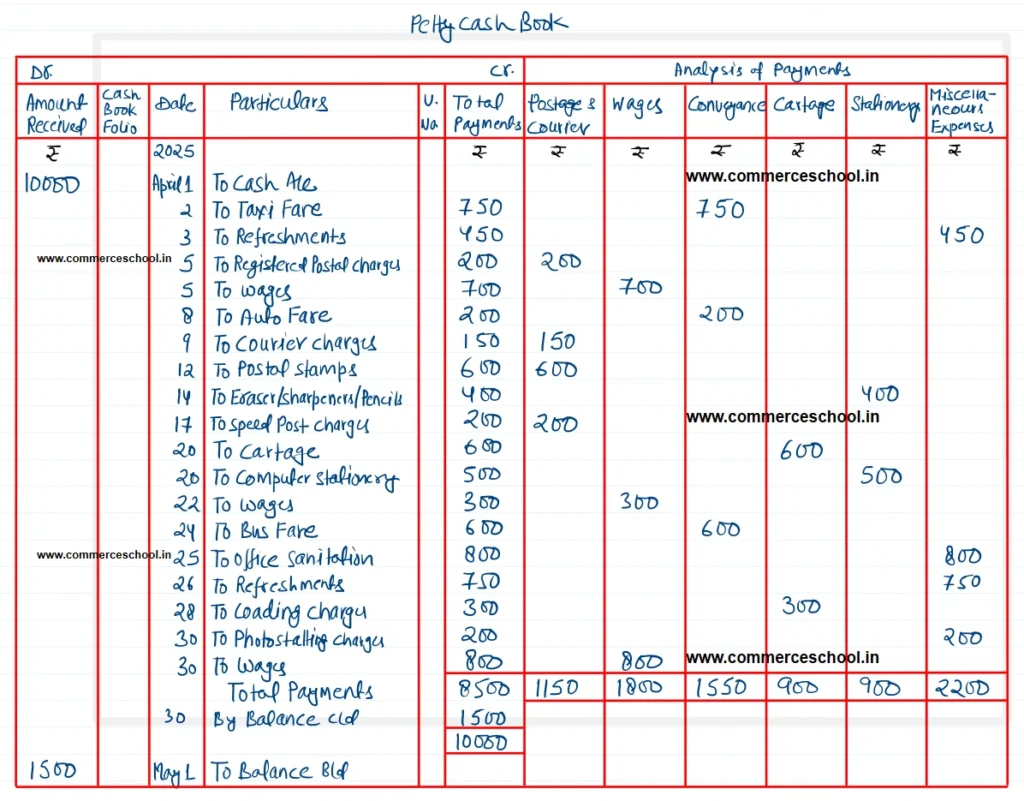 Petty Cash Book
Dr. Cr. Analysis of Payments
Amount Received Cash Book Folio Date Particulars V. No Total Payments Postage & Courier Wages Conveyance Cartage Stationery Miscella-neous Expenses
₹ 2025 ₹ ₹ ₹ ₹ ₹ ₹ ₹
10000 April 1 To Cash A/c www.commerceschool.in
2 To Taxi Fare 750 750
3 To Refreshments 450 450
www.commerceschool.in 5 To Registered Postal charges 200 200
5 To wages 700 700
8 To Auto Fare 200 200
9 To Courier charges 150 150
12 To Postal stamps 600 600
14 To Eraser/sharpeners/Pencils 400 400
17 To speed Post charges 200 200 www.commerceschool.in
20 To Cartage 600 600
20 To Computer stationery 500 500
22 To wages 300 300
24 To Bus Fare 600 600
www.commerceschool.in 25 To Office sanitation 800 800
26 To Refreshments 750 750
28 To Loading charges 300 300
30 To Photostatting charges 200 200
30 To Wages 800 800 www.commerceschool.in
Total Payments 8500 1150 1800 1550 900 900 2200
30 By Balance c/d 1500
10000
1500 May 1 To Balance B/d